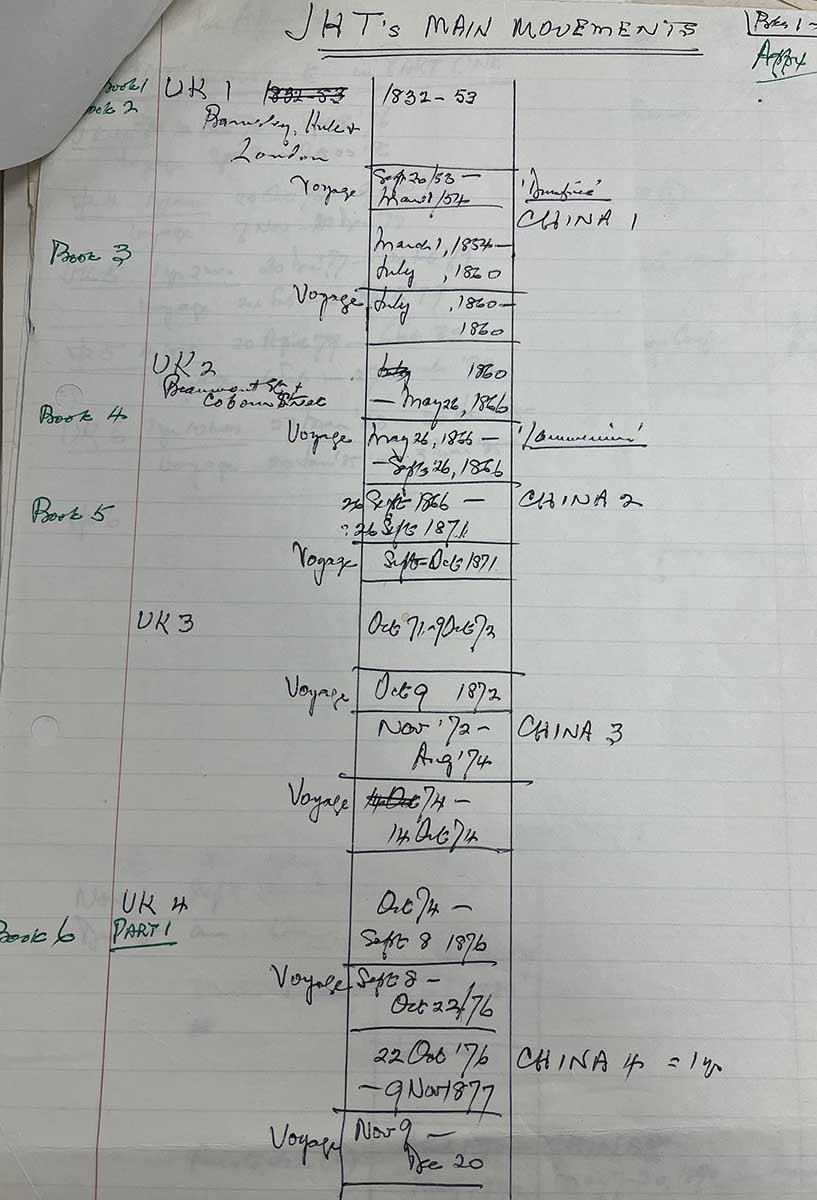 JHT's MAIN MOVEMENTS
Bks 1-
App 4
Book 1 UK 1 1832-53 1832-53
Book 2
Barnsley, Hull +
London
Voyage Sept 20/53 — 'Dumfries'
March 1/54
CHINA 1
March 1, 1854-
Book 3
July , 1860
Voyage July , 1860-
1860
UK 2 July 1860
Beaumont St +
Coborn Street
— May 26, 1866
Book 4
Voyage May 26, 1866 — 'Lammermuir'
— Sept 26, 1866
26 Sept 1866 — CHINA 2
Book 5
?26 Sept 1871
Voyage Sept-Oct 1871
UK 3 Oct 71-9 Oct 72
Voyage Oct 9 1872
Nov '72 - CHINA 3
Aug '74
Voyage 74 —
14 Oct 74
UK 4 Oct 74 —
Book 6 PART 1 Sept 8 1876
Voyage Sept 8 —
Oct 22/76
22 Oct '76 CHINA 4 = 1 yr
— 9 Nov 1877
Voyage Nov 9 —
Dec 20